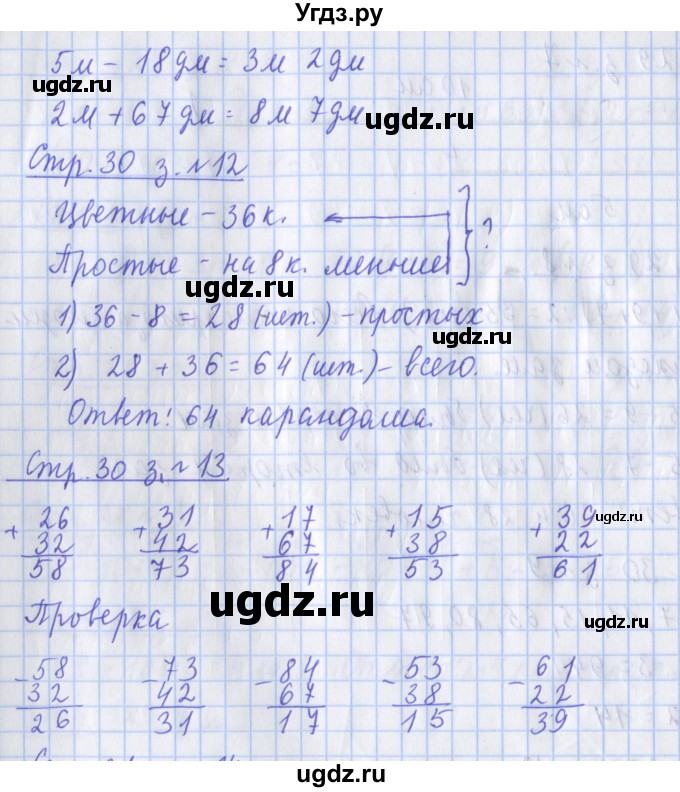 Угдз.ру
5м - 18дм = 3м 2дм
2м + 67дм = 8м 7дм
ugdz.ru
Стр. 30 з. №12
ugdz.ru
Цветные - 36к.
Простые - на 8к. меньше ?
ugdz.ru
1) 36 - 8 = 28 (шт.) - простых
2) 28 + 36 = 64 (шт.) - всего.
ugdz.ru
Ответ: 64 карандаша.
Стр. 30 з. №13
+ 26 + 31 + 17 + 15 + 39
ugdz.ru
32 42 67 38 22
58 73 84 53 61
ugdz.ru
Проверка
ugdz.ru
- 58 - 73 - 84 - 53 - 61
32 42 67 38 22
26 31 17 15 39
ugdz.ru
ugdz.ru